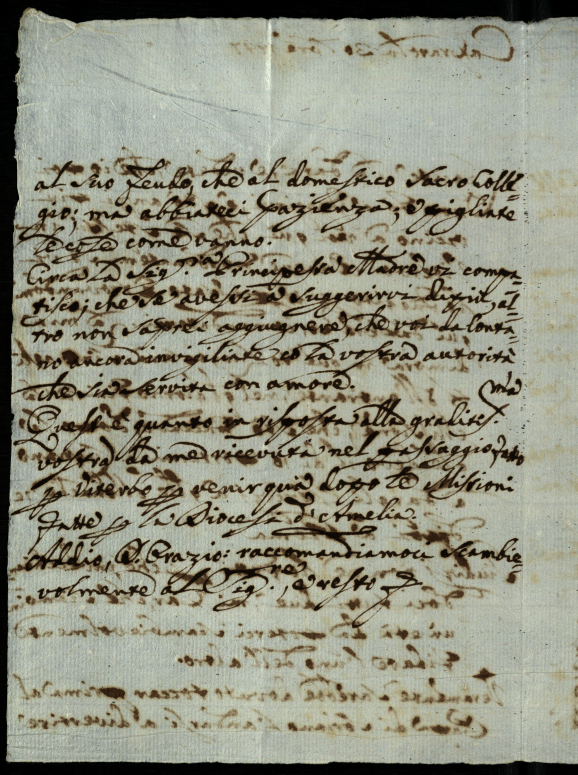 al suo feudo, che al domestico Sacro Colle-
gio; ma abbiateci pazienza, e pigliate
le cose come vanno.
Circa la Sig.ra Principessa Madre vi compa-
tisco; che se avessi a suggerirvi di più, al-
tro non saprei aggiugnere, che voi da lonta-
no ancora invigiliate co la vostra autorità
che sia servita con amore.
Quest'è quanto in risposta alla gratiss.ma
vostra da me ricevuta nel passaggio fatto
p Viterbo p venir quà dopo le Missioni
fatte p la Diocesa d'Amelia.
Addio, D. Orazio: raccomandiamoci scambie-
volmente al Sig.re, e resto